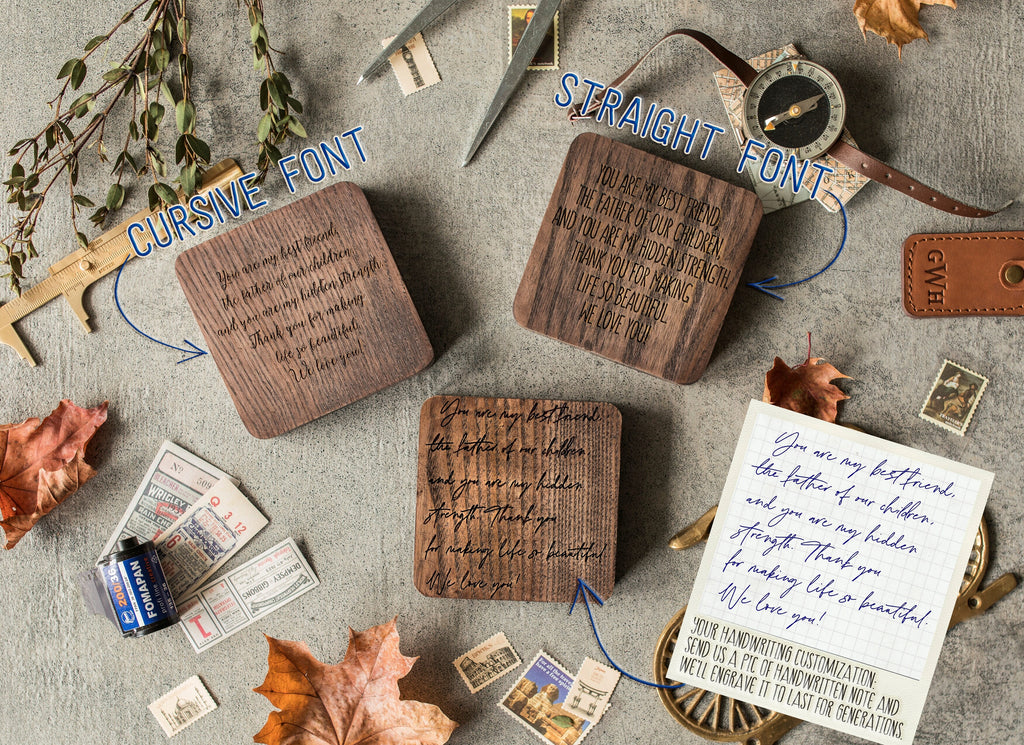 STRAIGHT FONT
CURSIVE FONT
You are my best friend,
the father of our children,
and you are my hidden strength.
Thank you for making
life so beautiful.
We love you!
YOU ARE MY BEST FRIEND,
THE FATHER OF OUR CHILDREN,
AND YOU ARE MY HIDDEN STRENGTH.
THANK YOU FOR MAKING
LIFE SO BEAUTIFUL
WE LOVE YOU!
GWH
You are my best friend
the father of our children
and you are my hidden
strength. Thank you
for making life so beautiful.
We love you!
You are my best friend,
the father of our children,
and you are my hidden
strength. Thank you
for making life so beautiful.
We love you!
YOUR HANDWRITING CUSTOMIZATION:
SEND US A PIC OF HANDWRITTEN NOTE AND
WE'LL ENGRAVE IT TO LAST FOR GENERATIONS.
No
WRIGLEY
RAIN CHECK
Q 3 12
DEMPSEY GIBBONS
200/36
FOMAPAN